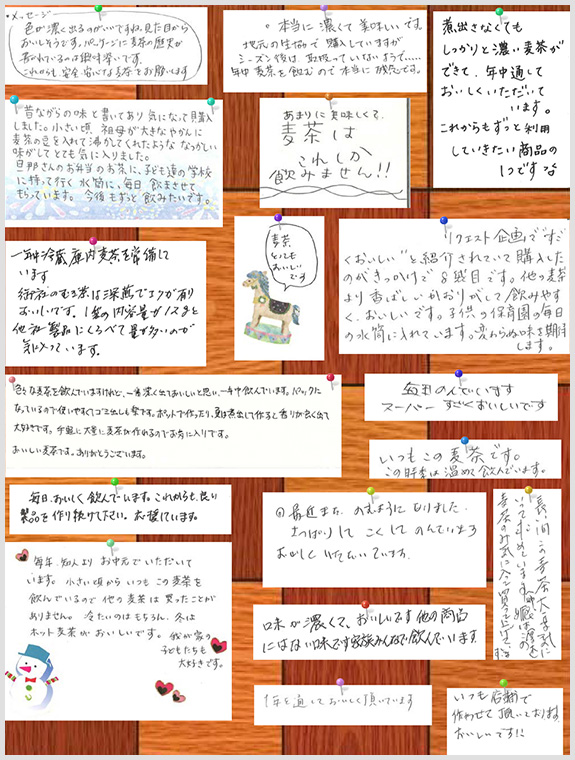 メッセージ
色が濃く出るのがいいですね。見た目から
おいしそうです。パッケージに麦茶の歴史が
書かれているのは興味深いです。
これからも、安全・安心な麦茶をお願いします
本当に濃くて美味しいです。
地元の生協で購入していますが
シーズン後は、取扱っていないようで……
年中麦茶を飲むので本当に残念です。
煮出さなくても
しっかりと濃い麦茶が
できて、年中通して
おいしくいただいて
います。
これからもずっと利用
していきたい商品の
1つです
昔ながらの味と書いてあり気になって購入
しました。小さい頃、祖母が大きなやかんに
麦茶の豆を入れて沸かしてくれたような なつかしい
味がしてとても気に入りました。
旦那さんのお弁当のお茶に、子ども達の学校
に持って行く水筒に、毎日飲まさせて
もらっています。今後もずっと飲みたいです。
あまりに美味しくて、
麦茶は
これしか
飲みません!!
一年中冷蔵庫内麦茶を常備して
います
御社のむぎ茶は深煎でコクが有り
おいしいです。1袋の内容量が
他社製品にくらべて量が多いのが
気に入っています。
麦茶
とても
おいしい
です
リクエスト企画で"すご
くおいしい"と紹介されていて購入した
のがきっかけで8袋目です。他の麦茶
より香ばしいかおりがして飲みやす
く、おいしいです。子供の保育園の毎日
の水筒に入れています。変わらぬ味を期待
します。
色々な麦茶を飲んでいますけれど、一番濃く出ておいしいと思い、一年中飲んでいます。パックに
なっているので使いやすくてゴミ出しも楽です。ポットで作ったり、夏は煮出して作ると香りが良く出て
大好きです。手軽に大量に麦茶が作れるのでお気に入りです。
おいしい麦茶です。ありがとうございます。
毎日のんでいます
スーパー すごくおいしいです
いつもこの麦茶です。
この時季は温めて飲んでいます。
毎日、おいしく飲んでいます。これからも、良い
製品を作り続けて下さい。応援しています。
最近また のむようになりました。
さっぱりして こくして のんでいます
おいしく いただいています。
毎年、知人よりお中元でいただいて
います。小さい頃からいつもこの麦茶を
飲んでいるので他の麦茶は買ったことが
ありません。冷たいのはもちろん、冬は
ホット麦茶がおいしいです。我が家の
子どもたちも
大好きです。
味が濃くて、おいしいです 他の商品
にはない味です 家族みんなで飲んでいます
1年を通しておいしく頂いています
いつも店頭で
作わせて頂いております。
おいしいです!!